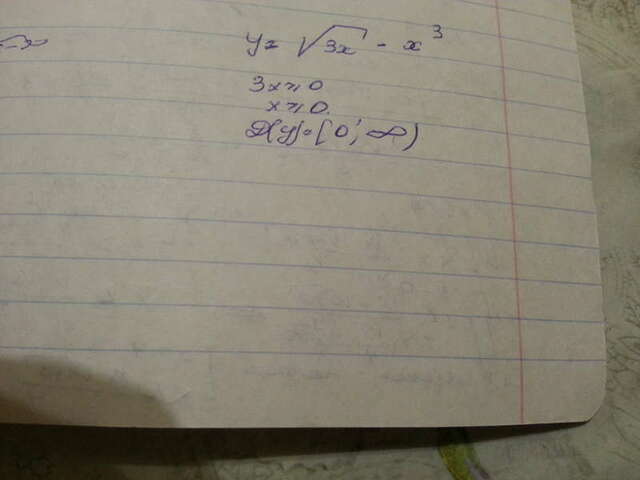 y = √3x - x³
3x ≥ 0
x ≥ 0.
D(y) = [0; ∞)